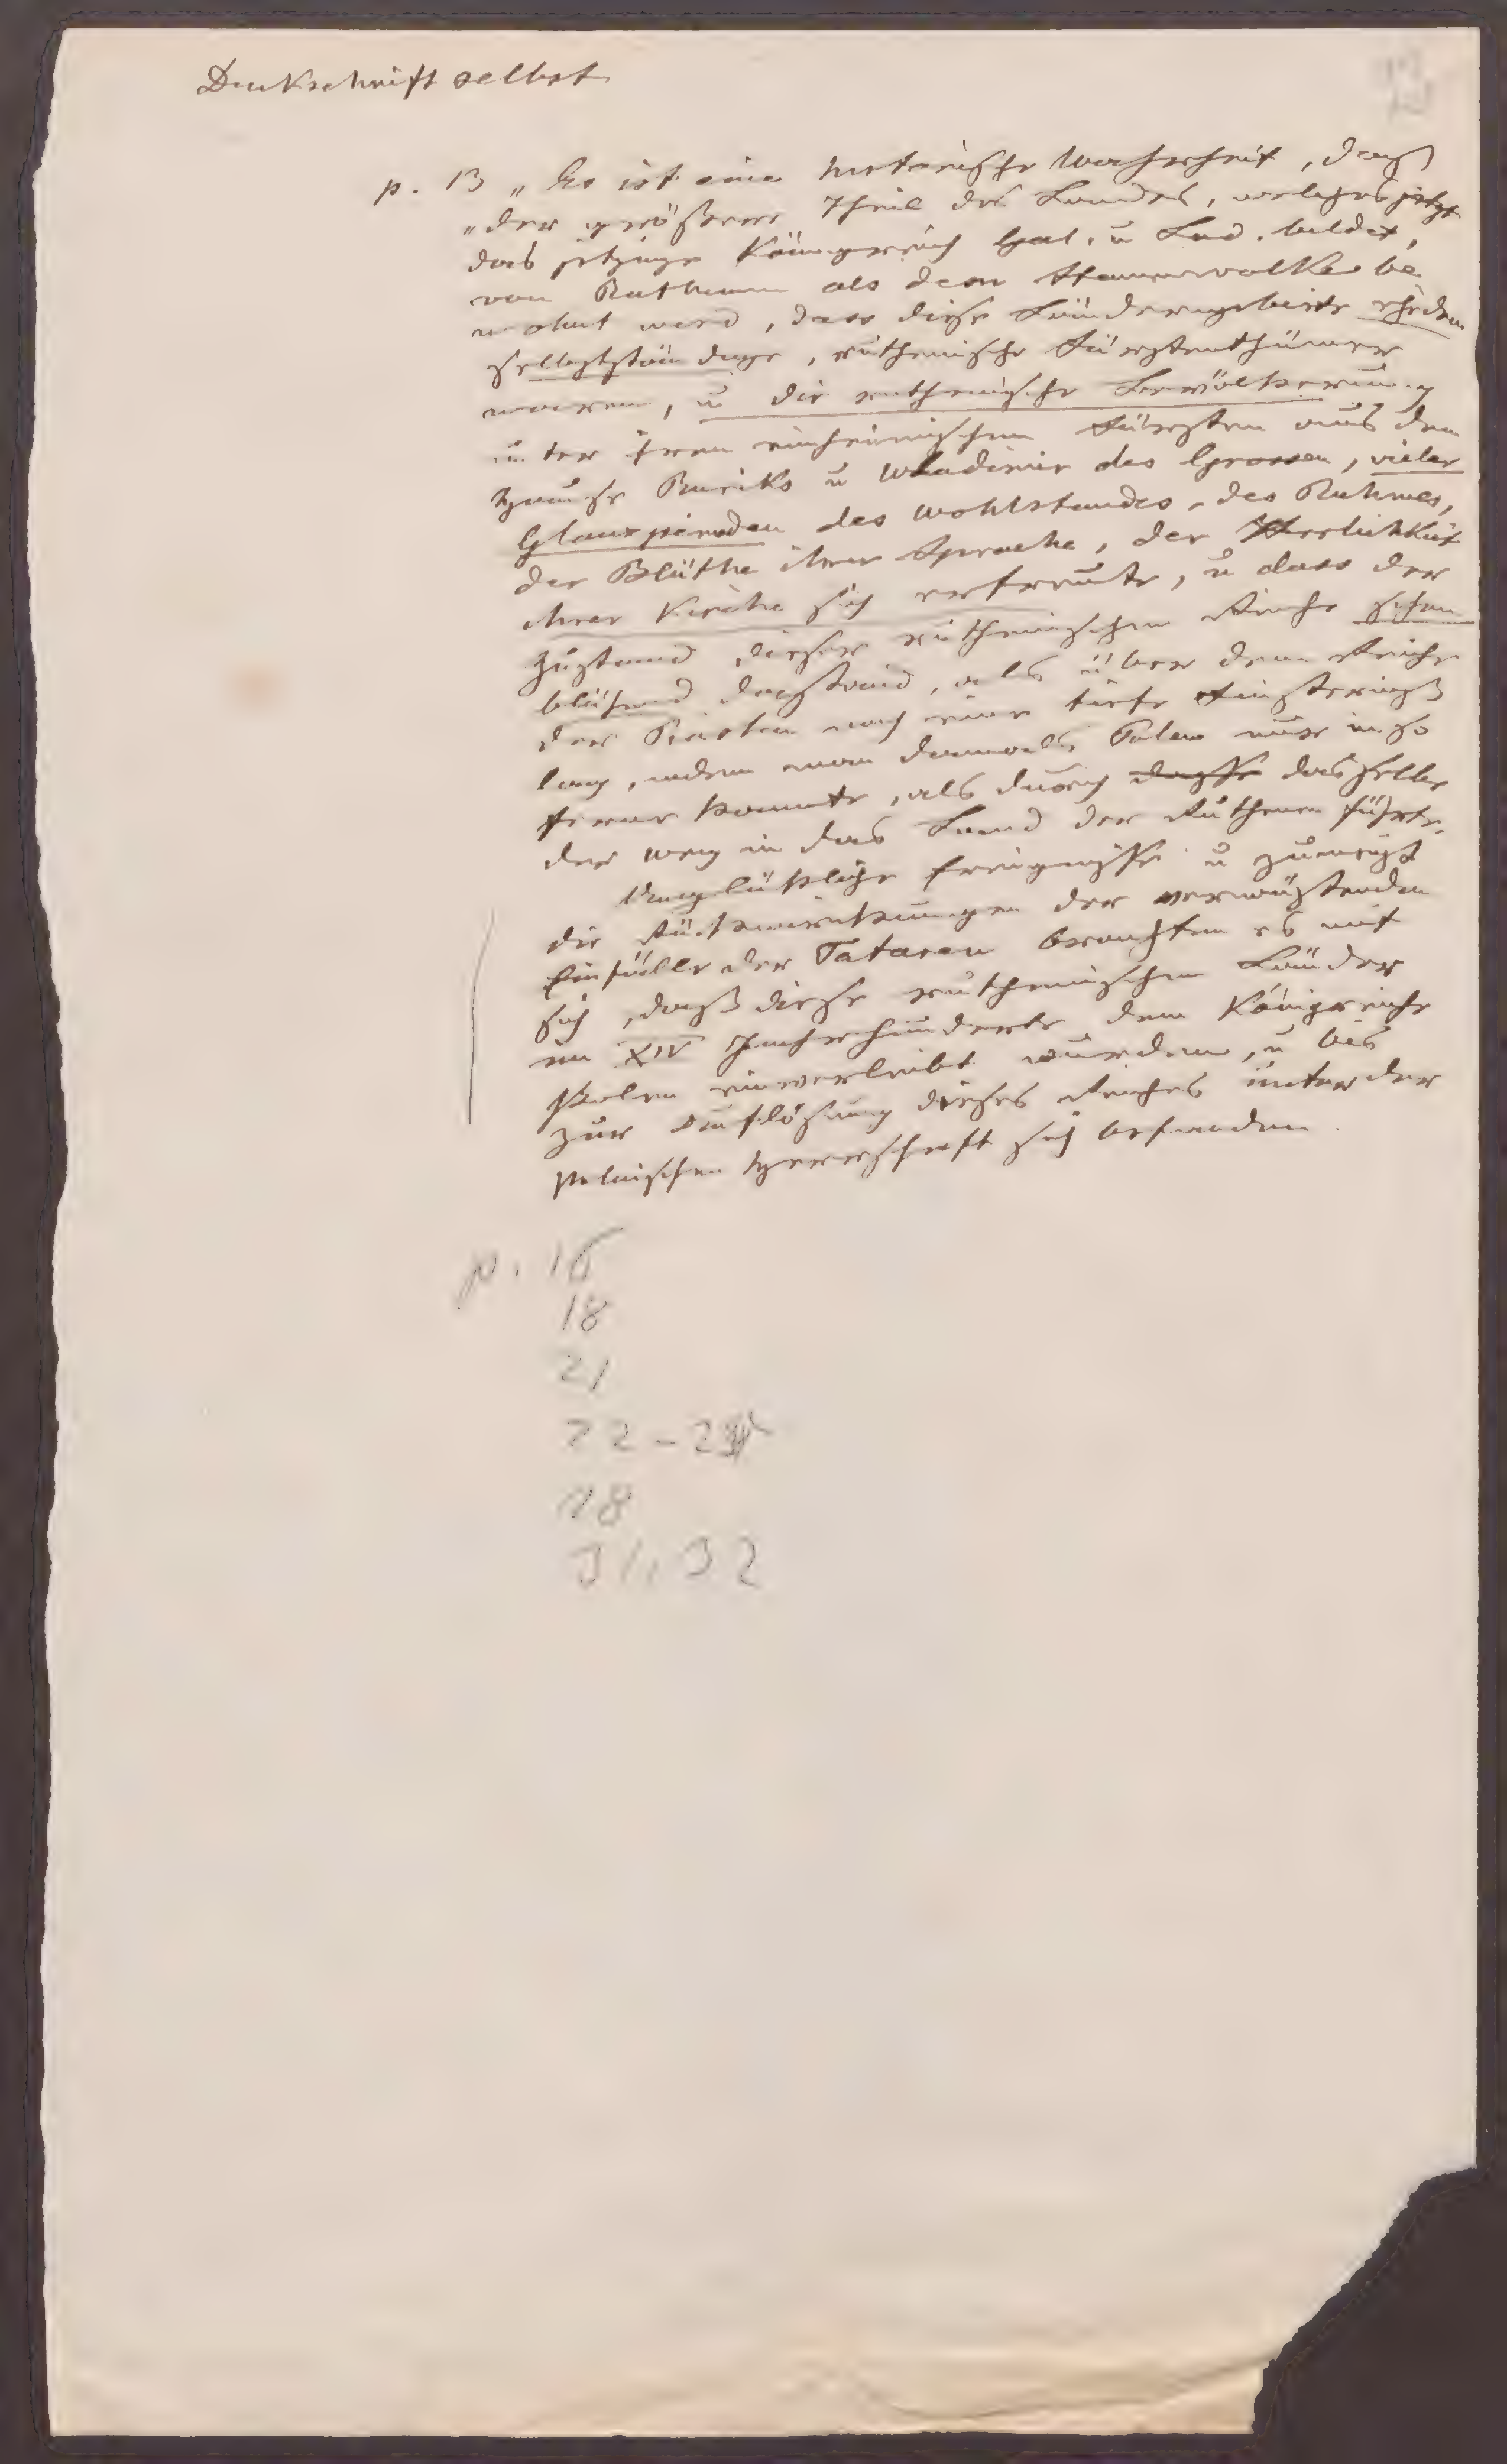 Denkschrift selbst
p. 13 „Es ist eine historische Wahrheit, daß
„der größere Theil des Landes, welches jetzt
das jetzige Königreich Gal. u Lod. bildet,
von Ruthenen als dem Stammvolke be
wohnt wird, dass diese Ländergebiete ehedem
selbstständige, ruthenische Fürstenthümer
waren, u die ruthenische Bevölkerung
unter ihren einheimischen Fürsten aus dem
Hause Ruriks u Wladimir des Grossen, vieler
Glanzperioden des Wohlstandes, des Ruhmes,
der Blüthe ihrer Sprache, der Herlichkeit
ihrer Kirche sich erfreute, u dass der
Zustand dieser ruthenischen Reiche schon
blühend dastand, als über dem Reiche
der Piasten noch eine tiefe Finsterniß
lag, indem man damals Polen nur in so
ferne kannte, als durch dasselbe
der Weg in das Land der Ruthenen führte.
Unglükliche Ereignisse u zumeist
die Rückwirkungen der verwüstenden
Einfälle der Tataren brachten es mit
sich, daß diese ruthenischen Länder
im XIV Jahrhunderte dem Königreiche
Polen einverleibt wurden, u bis
zur Auflösung dieses Reiches unter der
polnischen Herrschaft sich befanden.
p. 16
18
21
22-23
18
31, 32